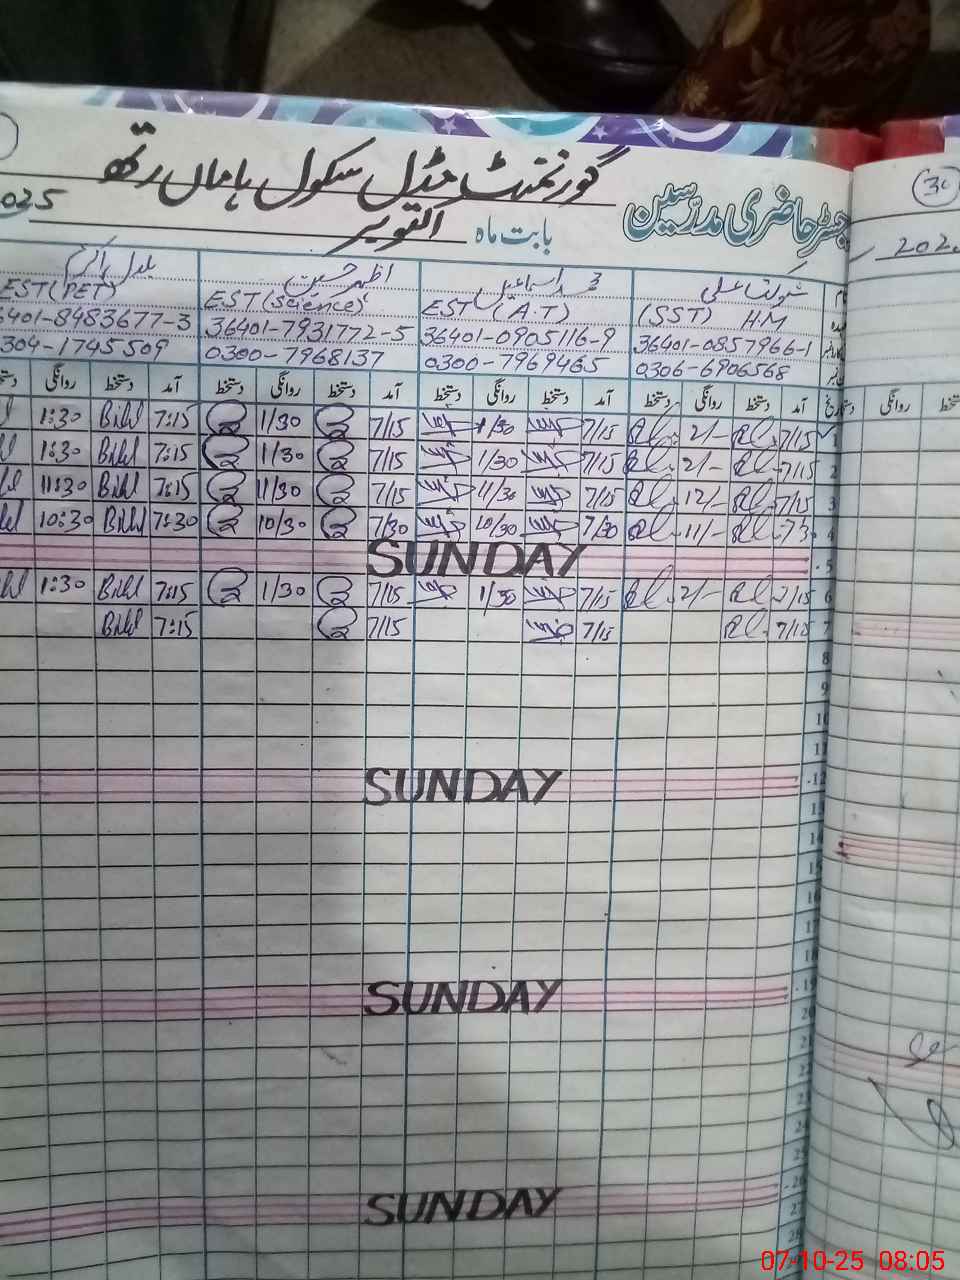 گورنمنٹ مڈل سکول ہاماں رتھ
رجسٹر حاضری مدرسین
بابت ماہ اکتوبر 2025
30
202
شوکت علی محمد اسماعیل اظہر حسین بلال اکرم
(SST) H.M EST (A.T) EST (Science) EST (PET)
36401-0857966-1 36401-0905116-9 36401-7931772-5 36401-8483677-3
0306-6906568 0300-7969465 0300-7968137 0304-1745509
تاریخ آمد دستخط روانگی دستخط آمد دستخط روانگی دستخط آمد دستخط روانگی دستخط آمد دستخط روانگی دستخط روانگی دستخط
1 7/15 2/- 7/15 1/30 7/15 1/30 7:15 Bilal 1:30
2 7/15 2/- 7/15 1/30 7/15 1/30 7:15 Bilal 1:30
3 7/15 12/- 7/15 11/30 7/15 11/30 7:15 Bilal 11:30
4 7/3 11/- 7/30 10/30 7/30 10/30 7:30 Bilal 10:30
5 SUNDAY
6 7/15 2/- 7/15 1/30 7/15 1/30 7:15 Bilal 1:30
7 7/15 7/15 7/15 7:15 Bilal
8
9
10
11
12 SUNDAY
13
14
15
16
17
18
19 SUNDAY
20
21
22
23
24
25
26 SUNDAY
27
28
07-10-25 08:05